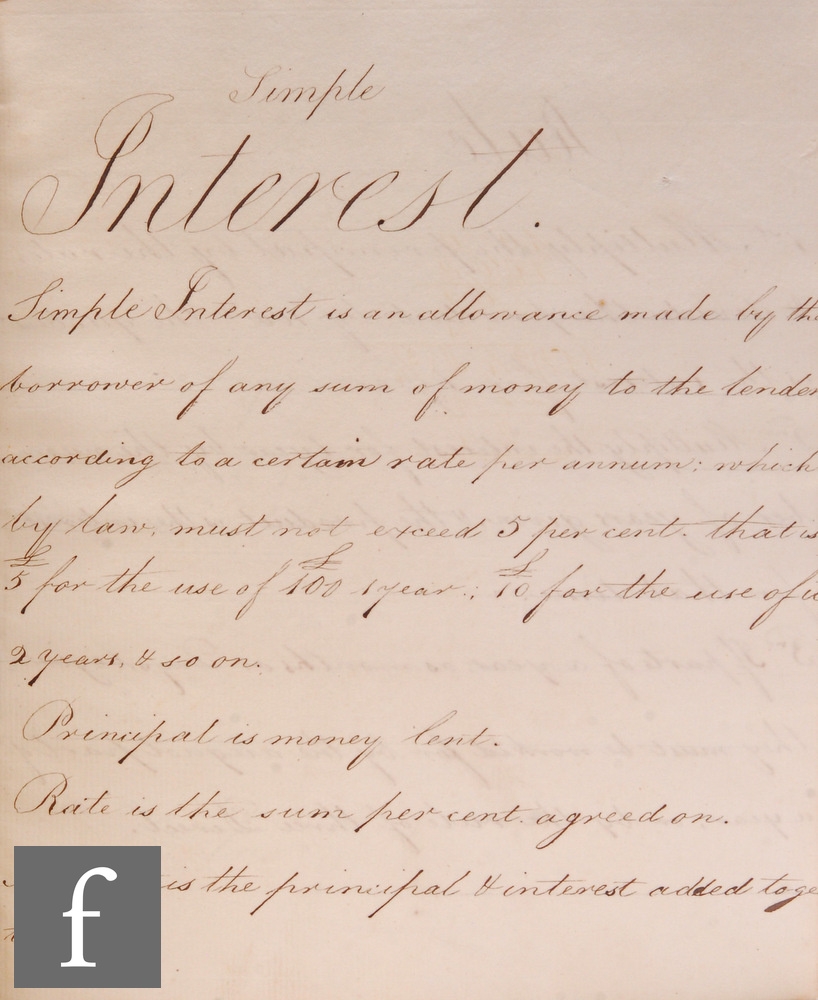 Simple
Interest.
Simple Interest is an allowance made by th
borrower of any sum of money to the lender
according to a certain rate per annum: which
by law, must not exceed 5 per cent. that is
£5 for the use of £100 1 year.; £10 for the use of
2 years, & so on.
Principal is money lent.
Rate is the sum per cent. agreed on.
is the principal & interest added toge
f